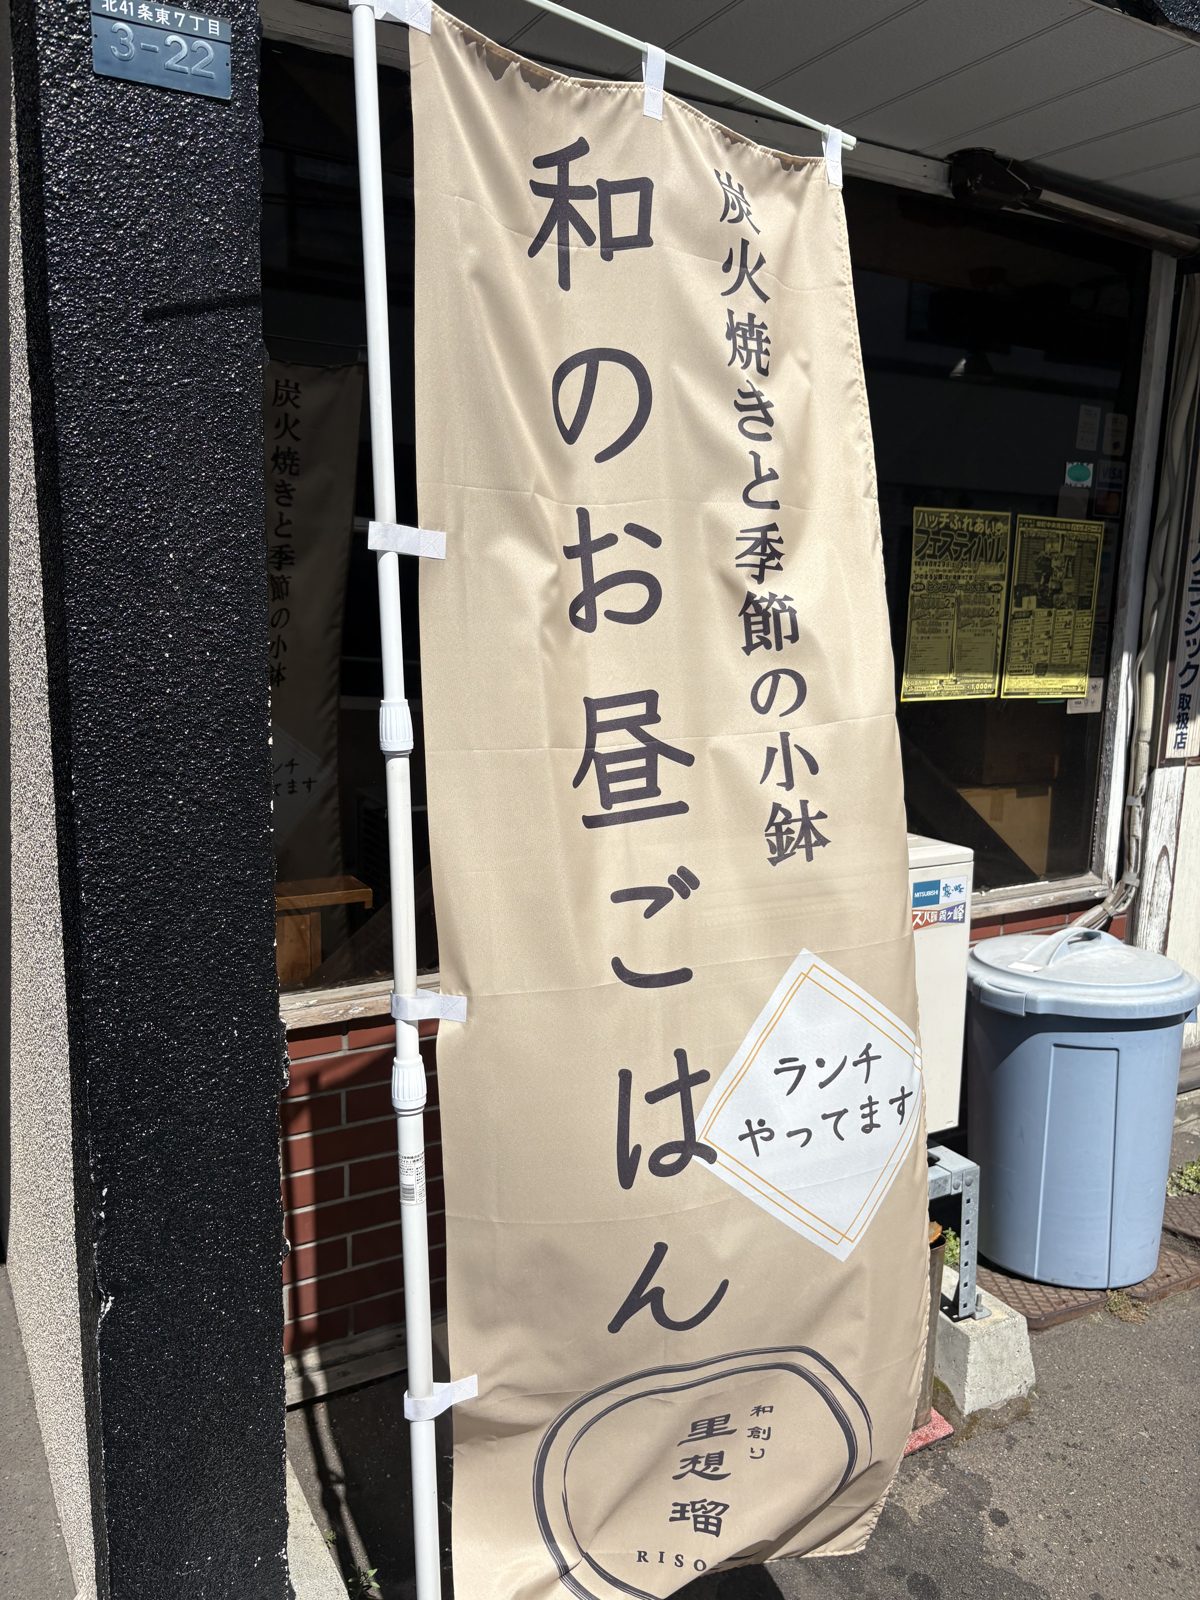 北41条東7丁目
3-22
炭火焼きと季節の小鉢
和のお昼ごはん
ランチ
やってます
和創り
里想瑠
RISO
炭火焼きと季節の小鉢
ンチ
てます
ハッチふれあい
フェスティバル
1,000円
VISA
MITSUBISHI
霧ヶ峰
ズバ暖 霧ヶ峰
クラシック 取扱店